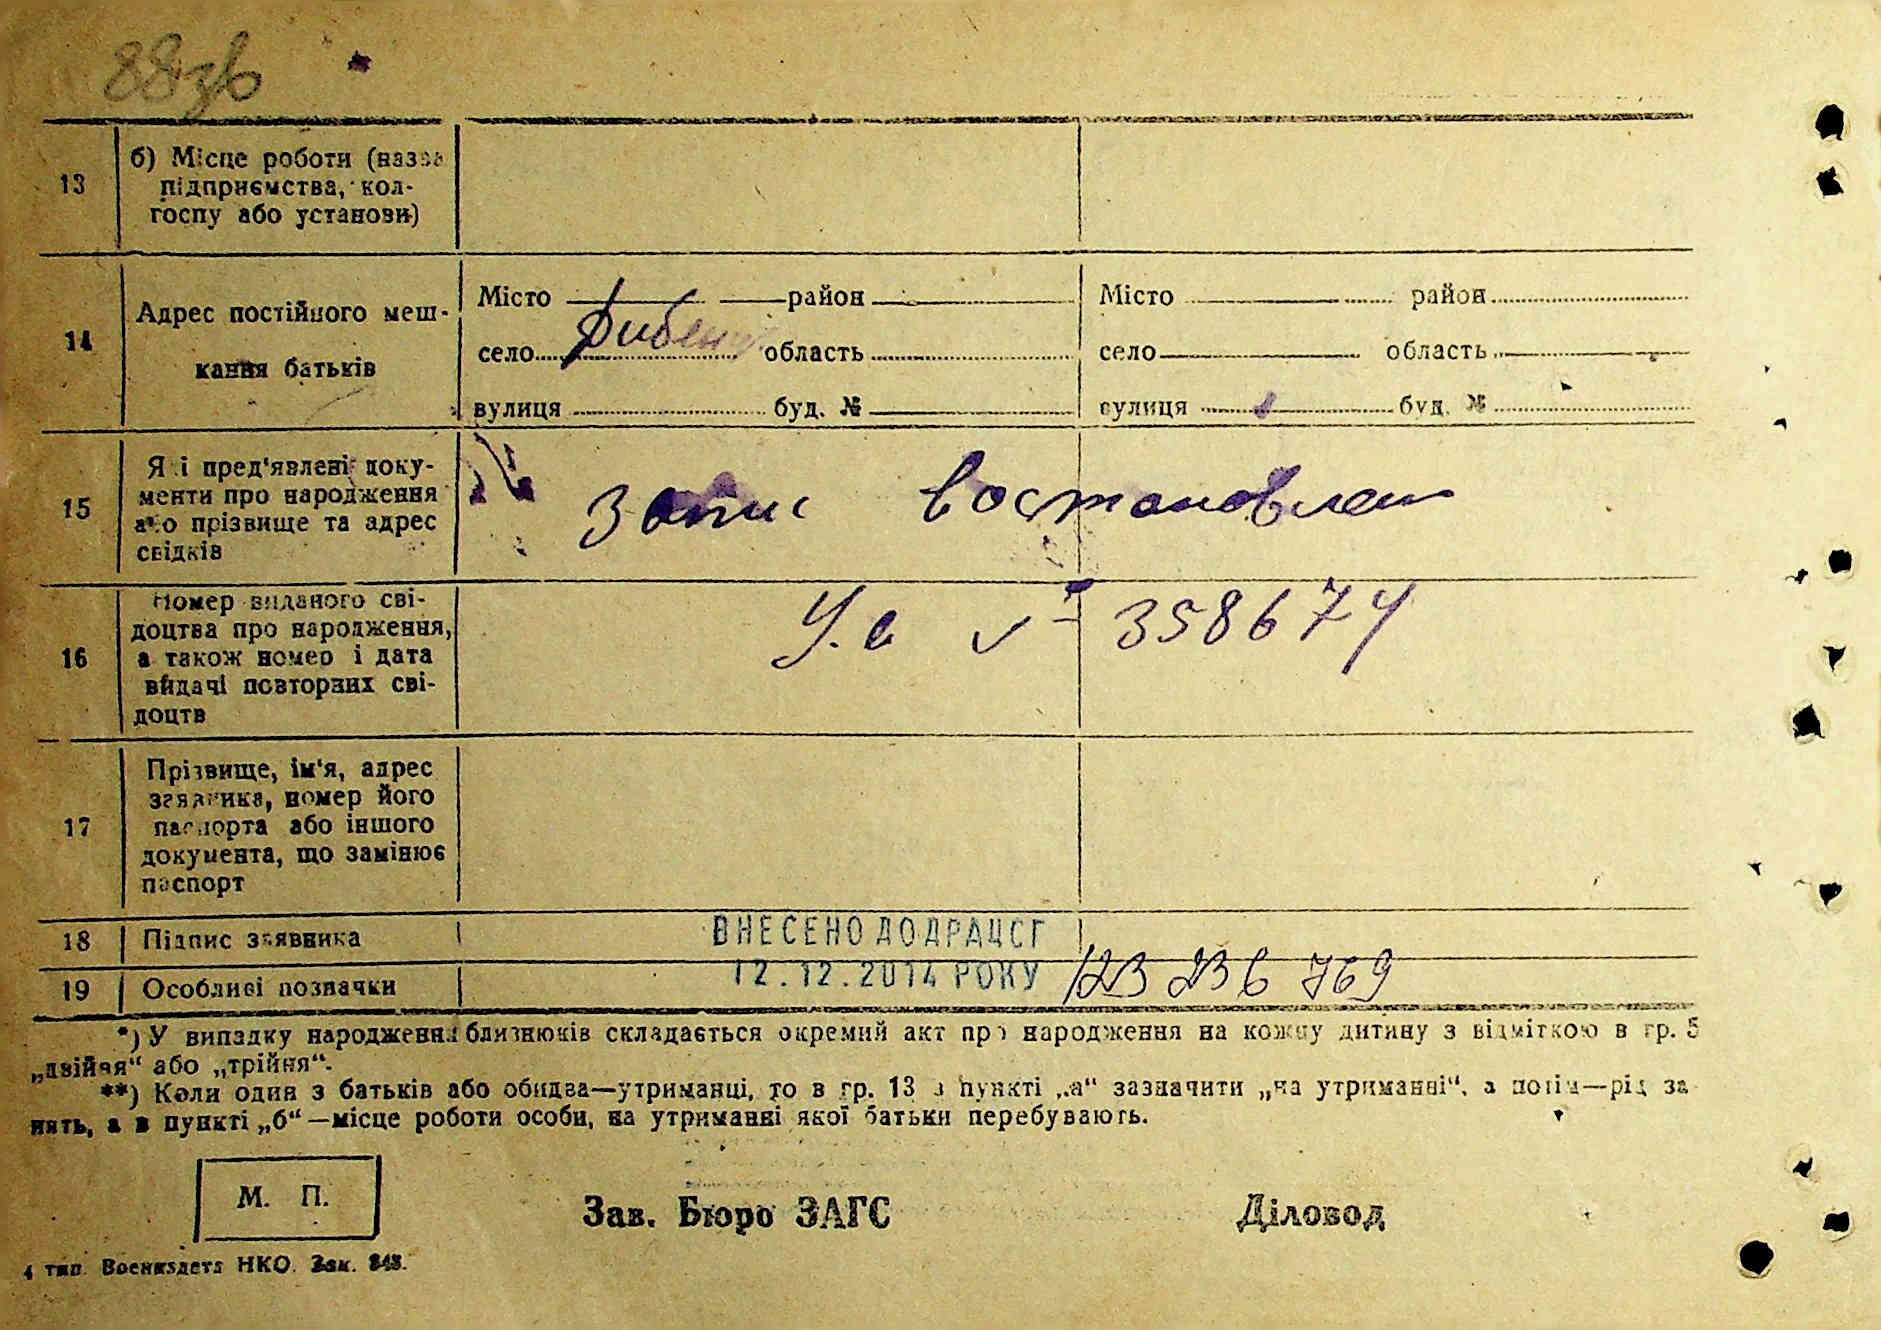 88зв
13
б) Місце роботи (назва
підприємства, кол-
госпу або установи)
14
Адрес постійного меш-
кання батьків
Місто район
село область
вулиця буд. №
Місто район
село область
вулиця буд. №
15
Які пред'явлені доку-
менти про народження
або прізвище та адрес
свідків
Запис востановлен
16
Номер виданого сві-
доцтва про народження,
а також номер і дата
видачі повторних сві-
доцтв
358674
17
Прізвище, ім'я, адрес
заявника, номер його
паспорта або іншого
документа, що замінює
паспорт
18 Підпис заявника
ВНЕСЕНО ДО ДРАЦСГ
19 Особливі позначки
12.12.2014 РОКУ 123 236 769
*) У випадку народження близнюків складається окремий акт про народження на кожну дитину з відміткою в гр. 5
„двійня“ або „трійня“.
**) Коли один з батьків або обидва—утриманці, то в гр. 13 в пункті „а“ зазначити „на утриманні“, а потім—рід за
нять, а в пункті „б“—місце роботи особи, на утриманні якої батьки перебувають.
М. П.
Зав. Бюро ЗАГС Діловод
4 тип. Воениздата НКО. Зак. 848.